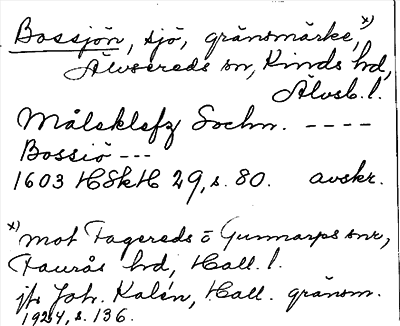 Bossjön, sjö, gränsmärke, x)
Älvsereds sn, Kinds hd,
Älvsb. l.
Målsklefz Sochn. ----
Bossiö ---
1603 HSkH 29, s. 80. avskr.
x) mot Fagereds o Gunnarps snr,
Faurås hd, Hall. l.
jfr Joh. Kalén, Hall. gränsm.
1924, s. 136.